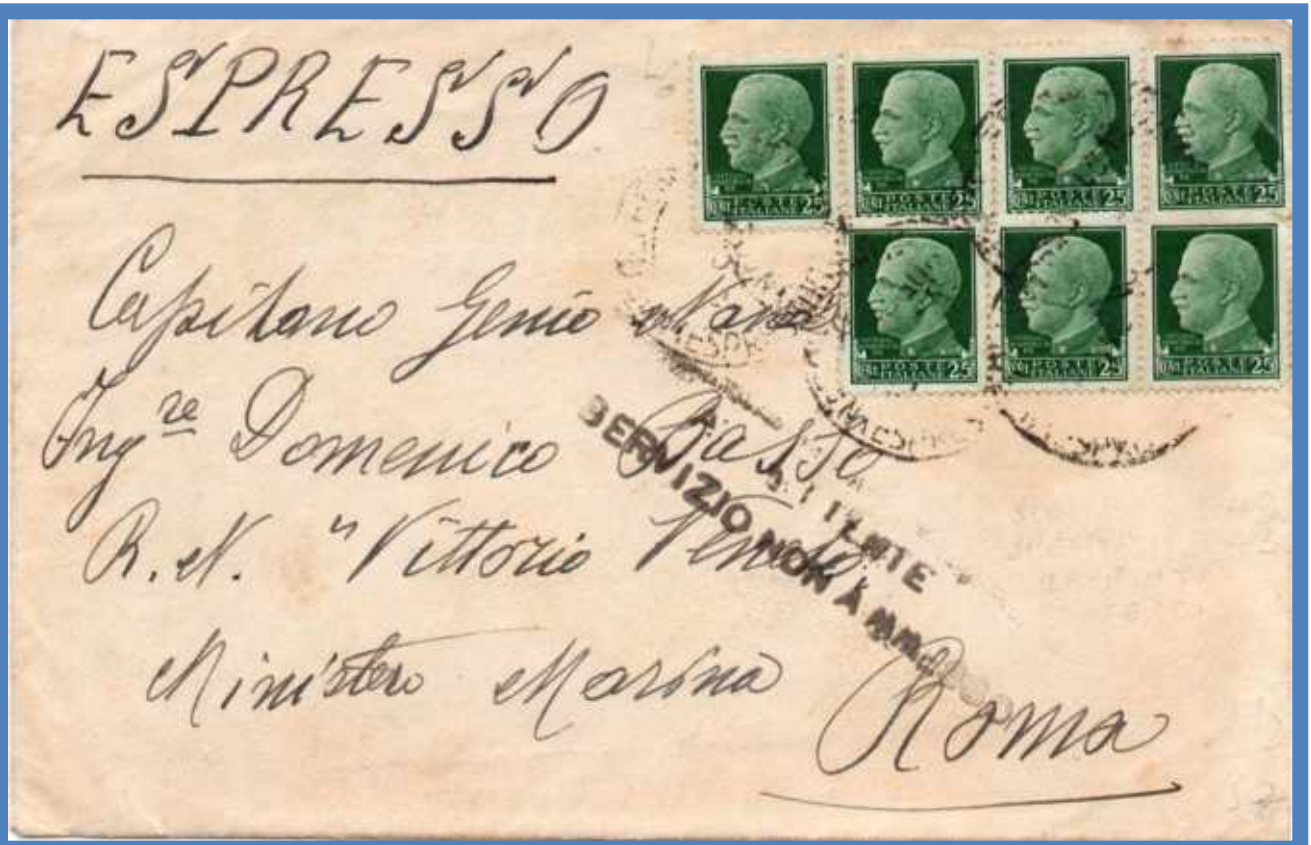 ESPRESSO
POSTE ITALIANE 25
POSTE ITALIANE 25
POSTE ITALIANE 25
POSTE ITALIANE 25
POSTE ITALIANE 25
POSTE ITALIANE 25
POSTE ITALIANE 25
Capitano Genio
Ingre Domenico Basso
R. N. "Vittorio Veneto
SERVIZIO NON AMMESSO
Ministero Marina
Roma